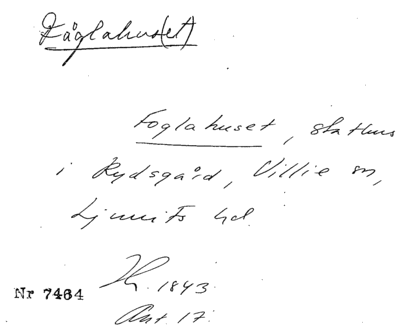 Fåglahus(et)
Foglahuset, stathus
i Rydsgård, Villie sn,
Ljunits hd.
1843.
Nr 7464
Ant. 17.